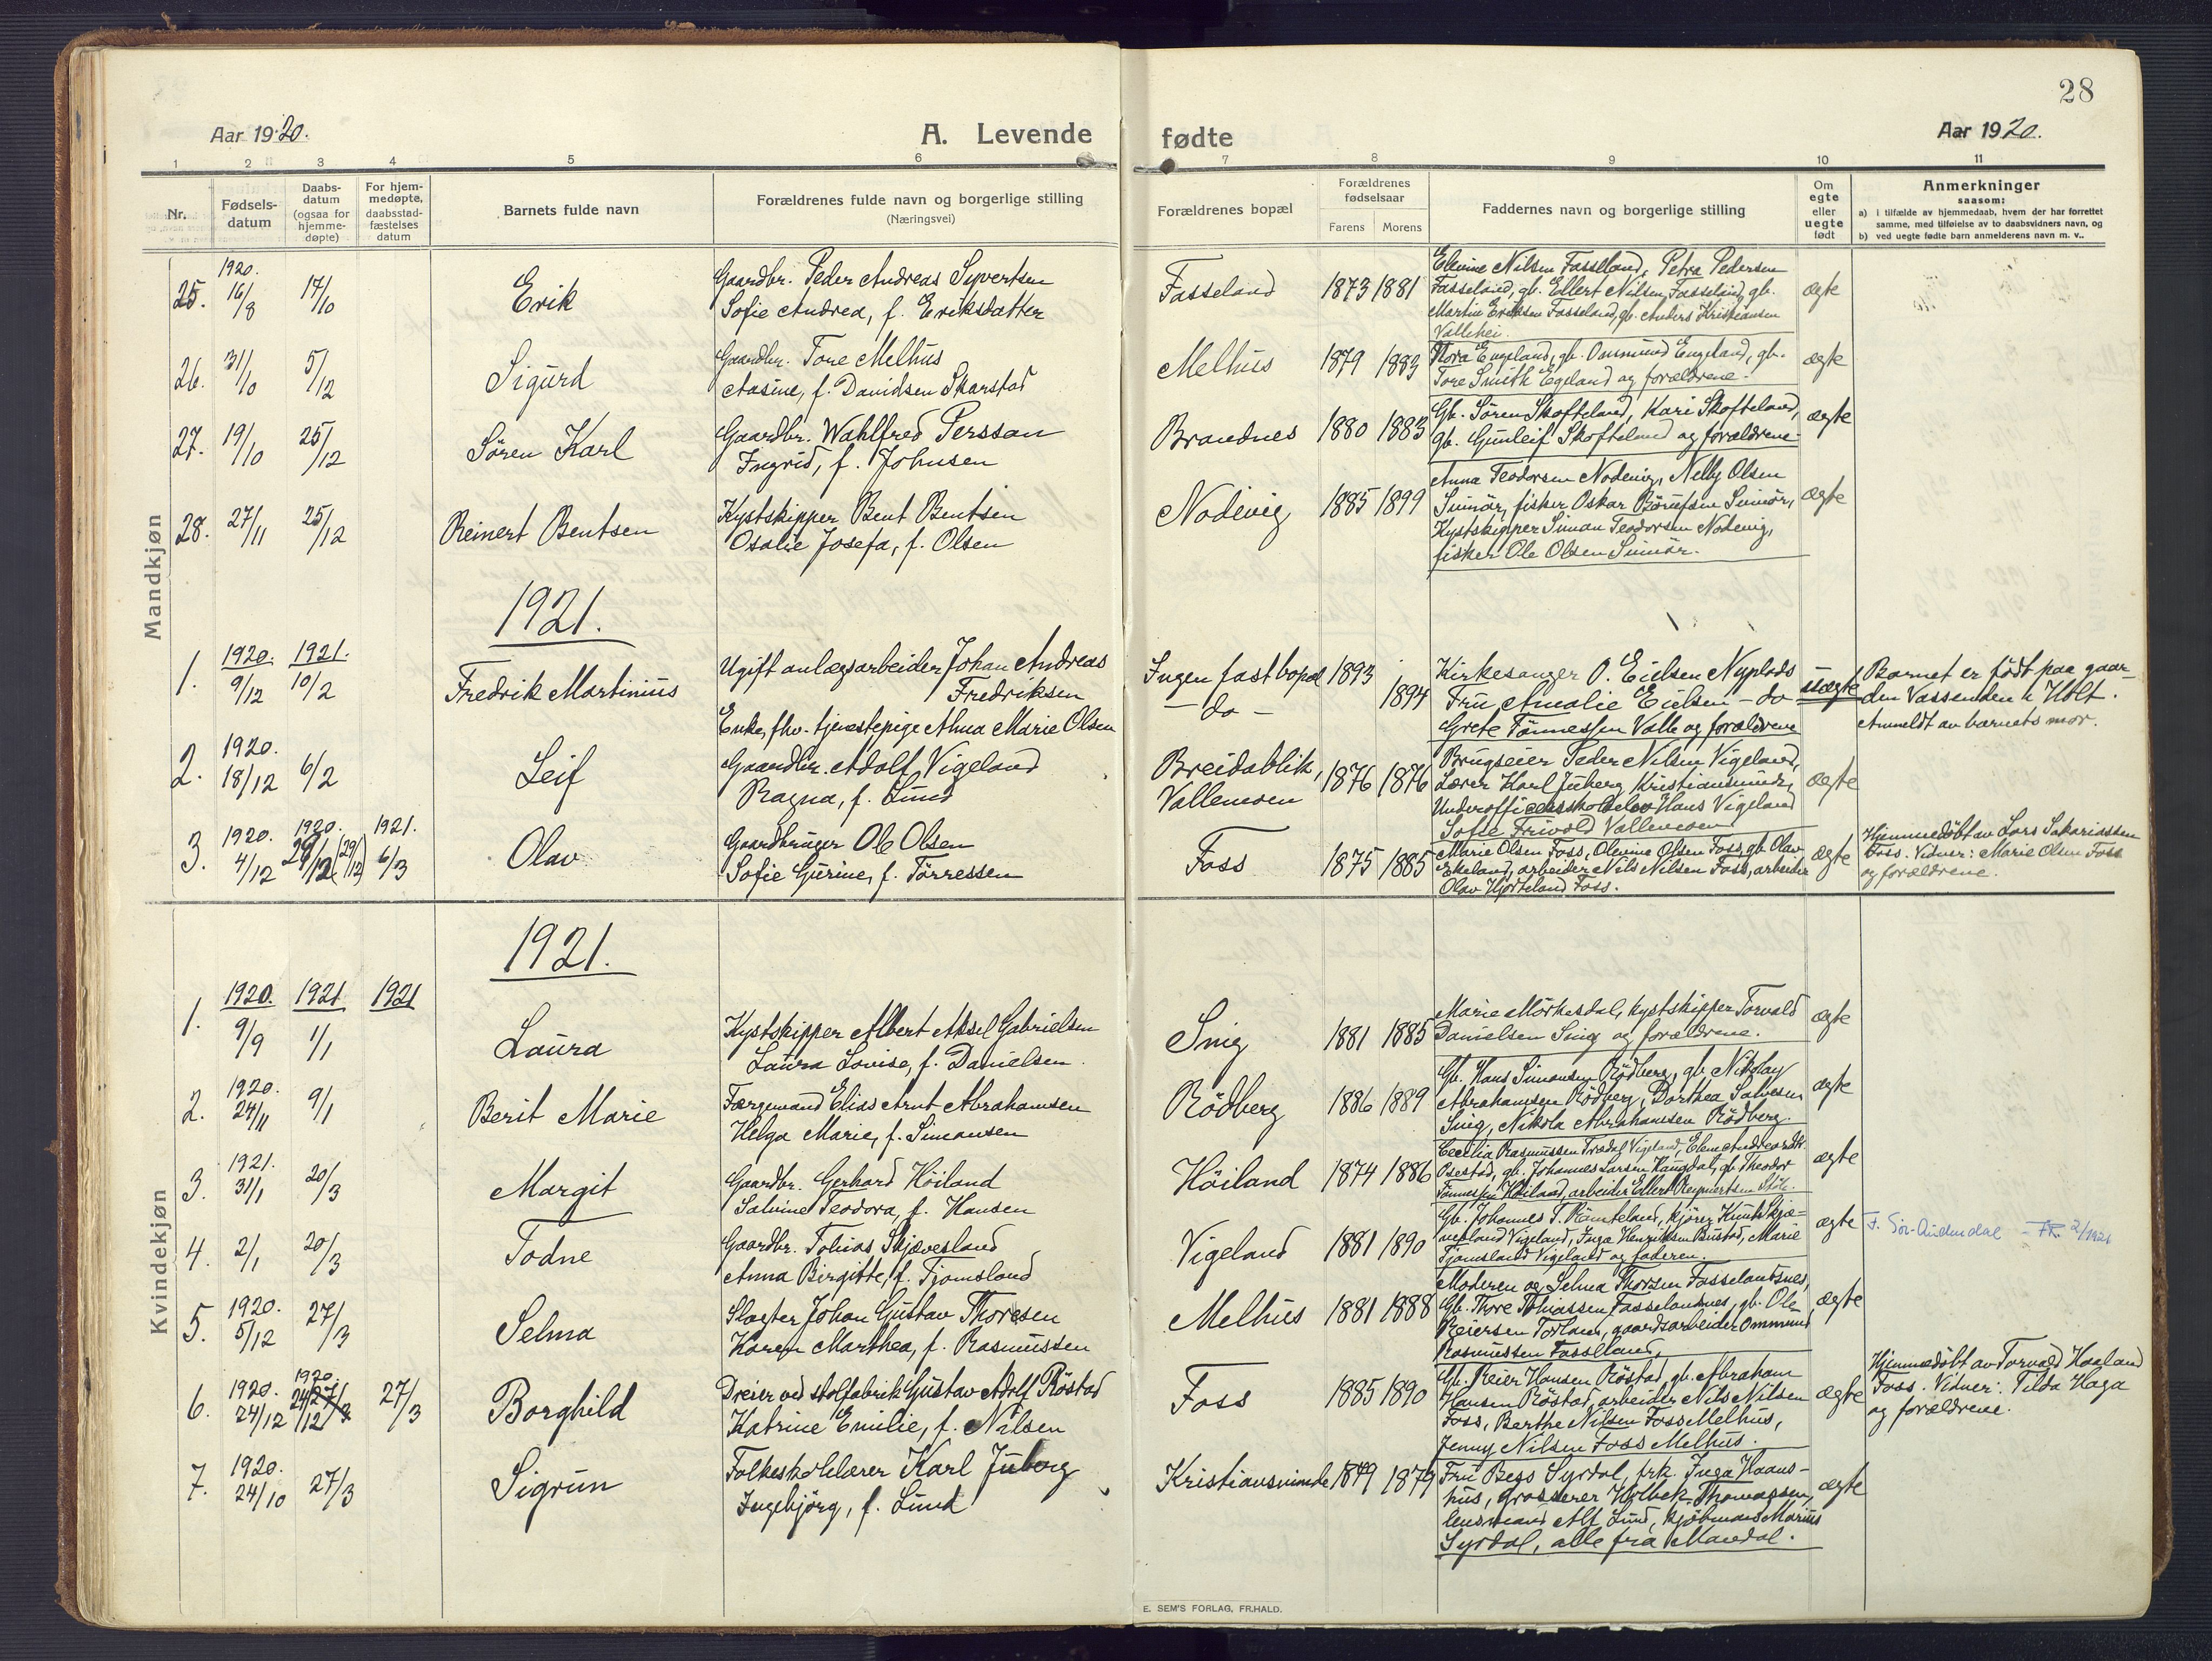 28
Aar 1920.
A. Levende
fødte
Aar 1920.
1 2 3 4 5 6 7 8 9 10 11
Nr.
Fødsels-
datum
Daabs-
datum
(ogsaa for
hjemme-
døpte)
For hjem-
medøpte,
daabsstad-
fæstelses
datum
Barnets fulde navn
Forældrenes fulde navn og borgerlige stilling
(Næringsvei)
Forældrenes bopæl
Forældrenes
fødselsaar
Farens Morens
Faddernes navn og borgerlige stilling
Om
egte
eller
uegte
født
Anmerkninger
saasom:
a) i tilfælde av hjemmedaab, hvem der har forrettet
samme, med tilføielse av to daabsvidners navn, og
b) ved uegte fødte barn anmelderens navn m. v..
Mandkjøn
25. 1920. 16/8 17/10 Erik
Gaardbr. Peder Andreas Syvertsen
Sofie Andrea, f. Eriksdatter
Fasseland 1873 1881
Elevine Nilsen Fasseland, Petra Pedersen
Fasseland, gb. Ellert Nilsen Fasseland, gb.
Martin Eriksen Fasseland, gb. Anders Kristiansen
Vallehei.
ægte
26. 31/10 5/12 Sigurd
Gaardbr. Tore Melhus
Aasine, f. Davidsen Skarstad
Melhus 1879 1883
Thora Engeland, gb. Ommund Engeland, gb.
Tore Smith Egeland og forældrene.
ægte
27. 19/10 25/12 Søren Karl
Gaardbr. Wahlfred Persson
Ingrid, f. Johnsen
Brandnes 1880 1883
Gb. Søren Skofteland, Kari Skofteland,
gb. Gunleif Skofteland og forældrene.
ægte
28. 27/11 25/12 Reinert Bentsen
Kystskipper Bent Bentsen
Osalie Josefa, f. Olsen
Nodevig 1885 1899
Anna Teodorsen Nodevig, Nelly Olsen
fisker Oskar
Kystskipper Simon Teodorsen Nodevig,
fisker Ole Olsen
ægte
1921.
1. 1920. 9/12 1921. 10/2 Fredrik Martinius
Ugift anlægsarbeider Johan Andreas
Fredriksen
Enke, fhv. tjenestepige Alma Marie Olsen
Ingen fast bopæl 1893
– do – 1894
Kirkesanger O. Eielsen Nyplads
Fru Amalie Eielsen – do
Grete Tønnessen Valle og forældrene
uægte
Barnet er født paa gaar-
den Vassenden i Holt.
Anmeldt av barnets mor.
2. 1920. 18/12 6/2 Leif
Gaardbr. Adolf Vigeland
Ragna, f. Lund
Breidablik,
Vallemoen 1876 1876
Brugseier Peder Nilsen Vigeland,
Lærer Karl Juberg Kristiansund,
Underofficersskoleelev Hans Vigeland
Sofie Frivold Vallemoen
ægte
3. 1920. 4/12 1920. 29/12 (29/12) 1921. 6/3 Olav
Gaardbruger Ole Olsen
Sofie Gurine, f. Tørressen
Foss 1875 1885
Marie Olsen Foss, Olevine Olsen Foss, gb. Olav
Ekeland, arbeider Nils Nilsen Foss, arbeider
Olav Hjorteland Foss.
ægte
Hjemmedøbt av Lars Sakariassen
Foss. Vidner: Marie Olsen Foss
og forældrene.
Kvindekjøn
1921.
1. 1920. 9/9 1921 1/1 1921 Laura
Kystskipper Albert Aksel Gabrielsen
Laura Lovise, f. Danielsen
Snig 1881 1885
Marie Mörkesdal, kystskipper Torvald
Danielsen Snig og forældrene.
ægte
2. 1920. 24/11 9/1 Berit Marie
Færgemand Elias Arnt Abrahamsen
Helga Marie, f. Simonsen
Rödberg 1886 1889
Gb. Hans Simonsen Rödberg, gb. Nikolay
Abrahamsen Rödberg, Dorthea Salvesen
Snig, Nikola Abrahamsen Rödberg.
ægte
3. 1921. 31/1 20/3 Margit
Gaardbr. Gerhard Höiland
Salvine Teodora, f. Hansen
Höiland 1874 1886
Cecilia Rasmussen Trædal Vigeland,
gb. Johannes Larsen Haugdal, gb. Theodor
Tønnessen Höiland, arbeider Ellert Reynertsen
ægte
4. 2/1 20/3 Todne
Gaardbr. Tobias Skjævesland
Anna Birgitte, f. Tjomsland
Vigeland 1881 1890
Gb. Johannes T. kjører Knut Skjæ-
vesland Vigeland, Inga Henriksen Buestad, Marie
Tjomsland Vigeland og faderen.
ægte
F. Sör-Audnedal – FR. 2/1921
5. 1920. 5/12 27/3 Selma
Slagter Johan Gustav Thoresen
Karen Marthea, f. Rasmussen
Melhus 1881 1888
Moderen og Selma Thorsen Fasselandsnes,
Gb. Thore Tobiassen Fasselandsnes, gb. Ole
Reiersen gaardsarbeider Ommund
Rasmussen Fasseland.
ægte
6. 1920. 24/12 1920 24/12 27/3 27/3 Borghild
Dreier ved stolfabrik Gustav Adolf Röstad
Katrine Emilie, f. Nilsen
Foss 1885 1890
Gb. Reier Hansen Röstad, gb. Abraham
Hansen Röstad, arbeider Nils Nilsen
Foss, Berthe Nilsen Foss Melhus,
Jenny Nilsen Foss Melhus.
ægte
Hjemmedøbt av Torvald Haaland
Foss. Vidner: Tilda Haga
og forældrene.
7. 1920. 24/10 27/3 Sigrun
Folkeskolelærer Karl Juberg
Ingebjörg, f. Lund
Kristiansund 1879
Fru Bess Syrdal, frk. Inga Haans-
hus, grosserer Holbek Thomassen,
lensmand Alf Lund, kjøbmand Marius
Syrdal, alle fra Mandal.
ægte
E. SEM'S FORLAG, FR.HALD.